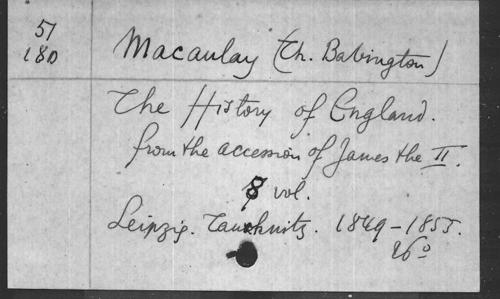 51
180
Macaulay (Th. Babington)
The History of England.
from the accession of James the II.
8 vol.
Leipzig. Tauchnitz. 1849-1855.
16º